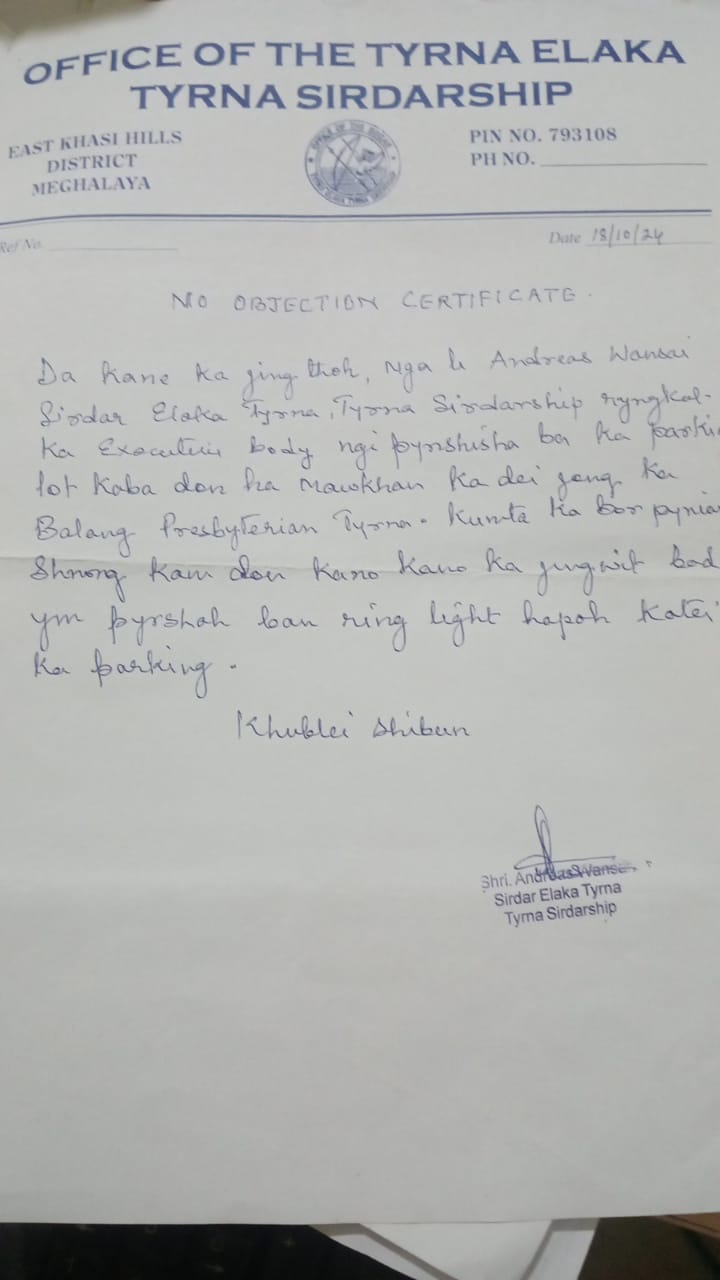 OFFICE OF THE TYRNA ELAKA
TYRNA SIRDARSHIP
EAST KHASI HILLS
DISTRICT
MEGHALAYA
PIN NO. 793108
PH NO.
Ref No.
Date 18/10/24
NO OBJECTION CERTIFICATE.
Da kane ka jing thoh, Nga u Andreas Wansai
Sirdar Elaka Tyrna, Tyrna Sirdarship ryngkat-
ka Executive body ngi pynshisha ba ka parki
lot kaba don ha Mawkhan ka dei jong ka
Balang Presbyterian Tyrna. Kumta ka bor pyniar
Shnong kam don kano kano ka jingwit bad
ym pyrshah ban ring light hapoh katei
ka parking.
Khublei shibun
Shri. Andreas Wansai
Sirdar Elaka Tyrna
Tyrna Sirdarship